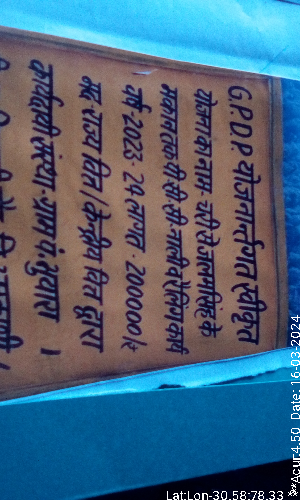 G.P.D.P. योजनार्न्तगत स्वीकृत
योजना का नाम- चरी से जलम सिंह के
मकान तक सी सी नाली व रेलिंग कार्य
वर्ष-2023-24 लागत - 200000/-
मद-राज्य वित्त / केन्द्रीय वित्त द्वारा
कार्यदायी संस्था-ग्राम पं. सुवारा ।
LatLon-30.58:78.33
**Acur:4.50 Date: 16-03-2024